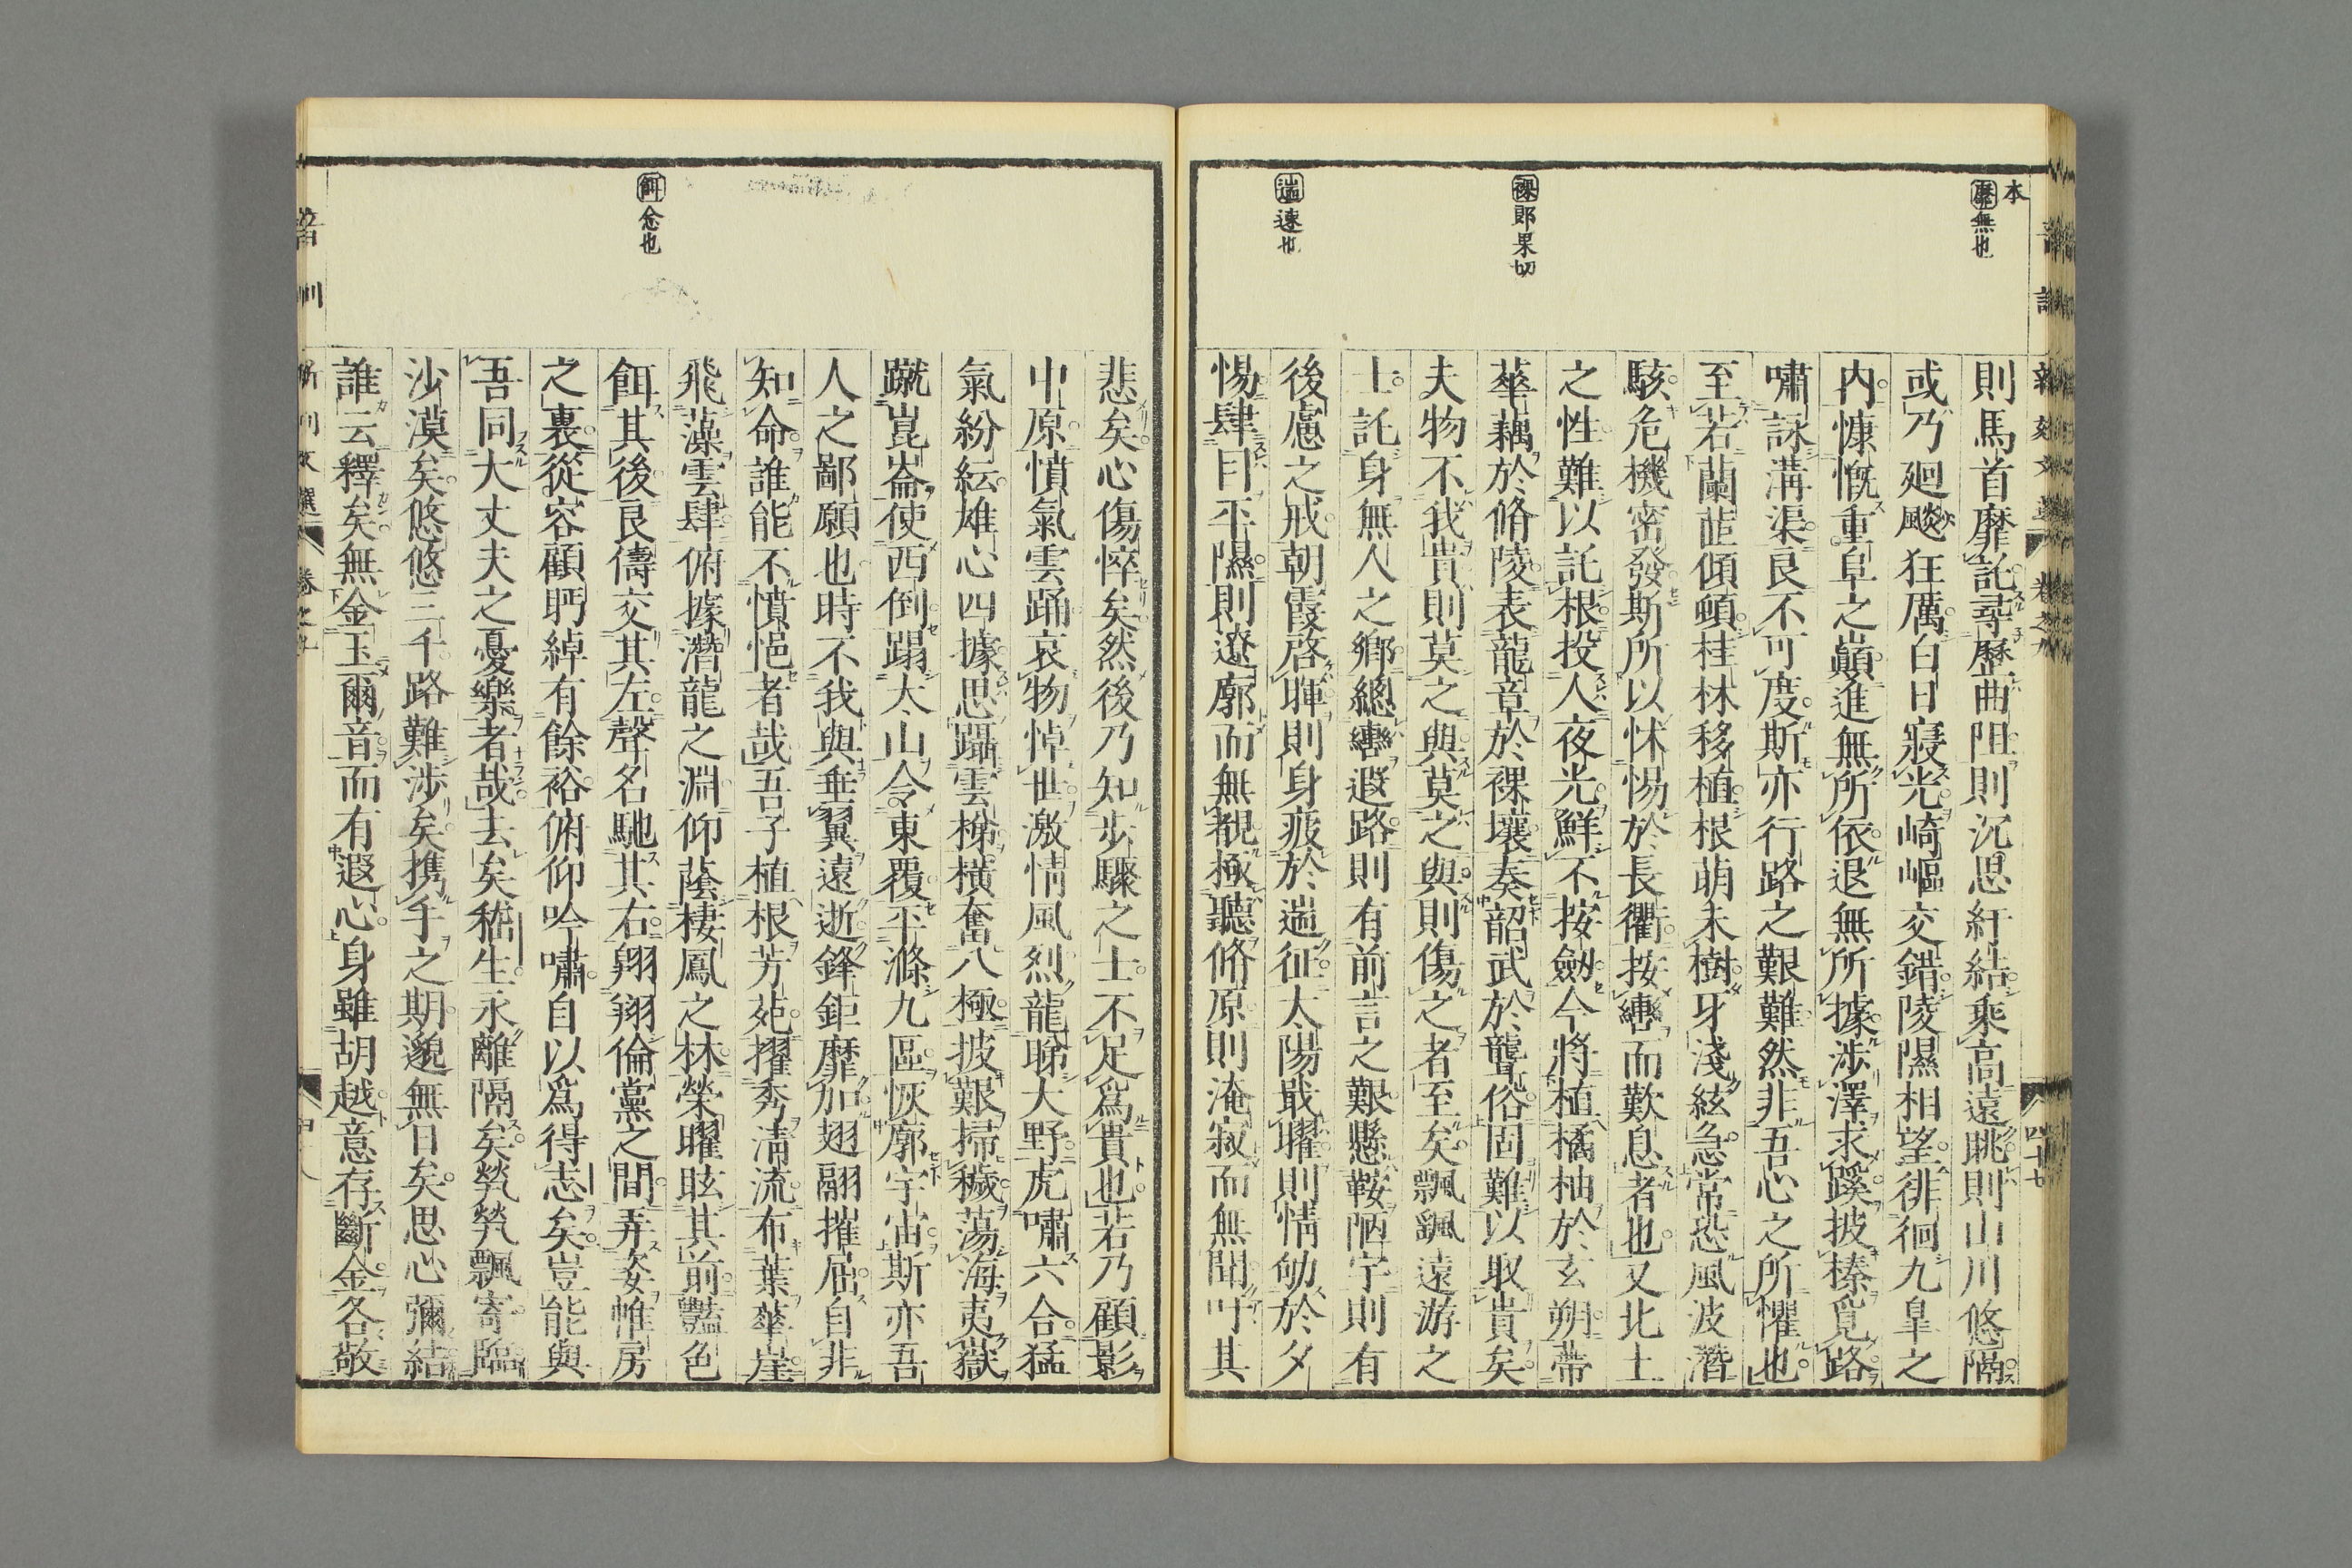 本
靡無也
裸郎果切
遄速也
則馬首靡託尋歷曲阻則沉思紆結乘高遠眺則山川悠隔
或乃廻飈狂厲白日寢光崎嶇交錯陵隰相望徘徊九皐之
内慷慨重阜之巔進無所依退無所據涉澤求蹊披榛覓路
嘯詠溝渠良不可度斯亦行路之艱難然非吾心之所懼也
至若蘭茝傾頓桂林移植根萌未樹牙淺絃急常恐風波潛
駭危機密發斯所以怵惕於長衢按轡而歎息者也又北土
之性難以託根投人夜光鮮不按劒今將植橘柚於玄朔蔕
華藕於脩陵表龍章於裸壤奏韶武於聾俗固難以取貴矣
夫物不我貴則莫之與莫之與則傷之者至矣飄飄遠游之
士託身無人之鄕總轡遐路則有前言之艱懸鞍陋宇則有
後慮之戒朝霞啓暉則身疲於遄征太陽戢曜則情劬於夕
惕肆目平隰則遼廓而無覩極聽脩原則淹寂而無聞吁其
餌念也
悲矣心傷悴矣然後乃知步驟之士不足爲貴也若乃顧影
中原憤氣雲踊哀物悼世激情風烈龍睇大野虎嘯六合猛
氣紛紜雄心四據思躡雲梯橫奮八極披艱掃穢蕩海夷嶽
蹴崑崙使西倒蹋太山令東覆平滌九區恢廓宇宙斯亦吾
人之鄙願也時不我與垂翼遠逝鋒鉅靡加翅翮摧屈自非
知命誰能不憤悒者哉吾子植根芳苑擢秀淸流布葉華崖
飛藻雲肆俯據潛龍之淵仰蔭棲鳳之林榮曜眩其前豔色
餌其後良儔交其左聲名馳其右翺翔倫黨之間弄姿帷房
之裏從容顧眄綽有餘裕俯仰吟嘯自以爲得志矣豈能與
吾同大丈夫之憂樂者哉去矣嵆生永離隔矣煢煢飄寄臨
沙漠矣悠悠三千路難涉矣携手之期邈無日矣思心彌結
誰云釋矣無金玉爾音而有遐心身雖胡越意存斷金各敬